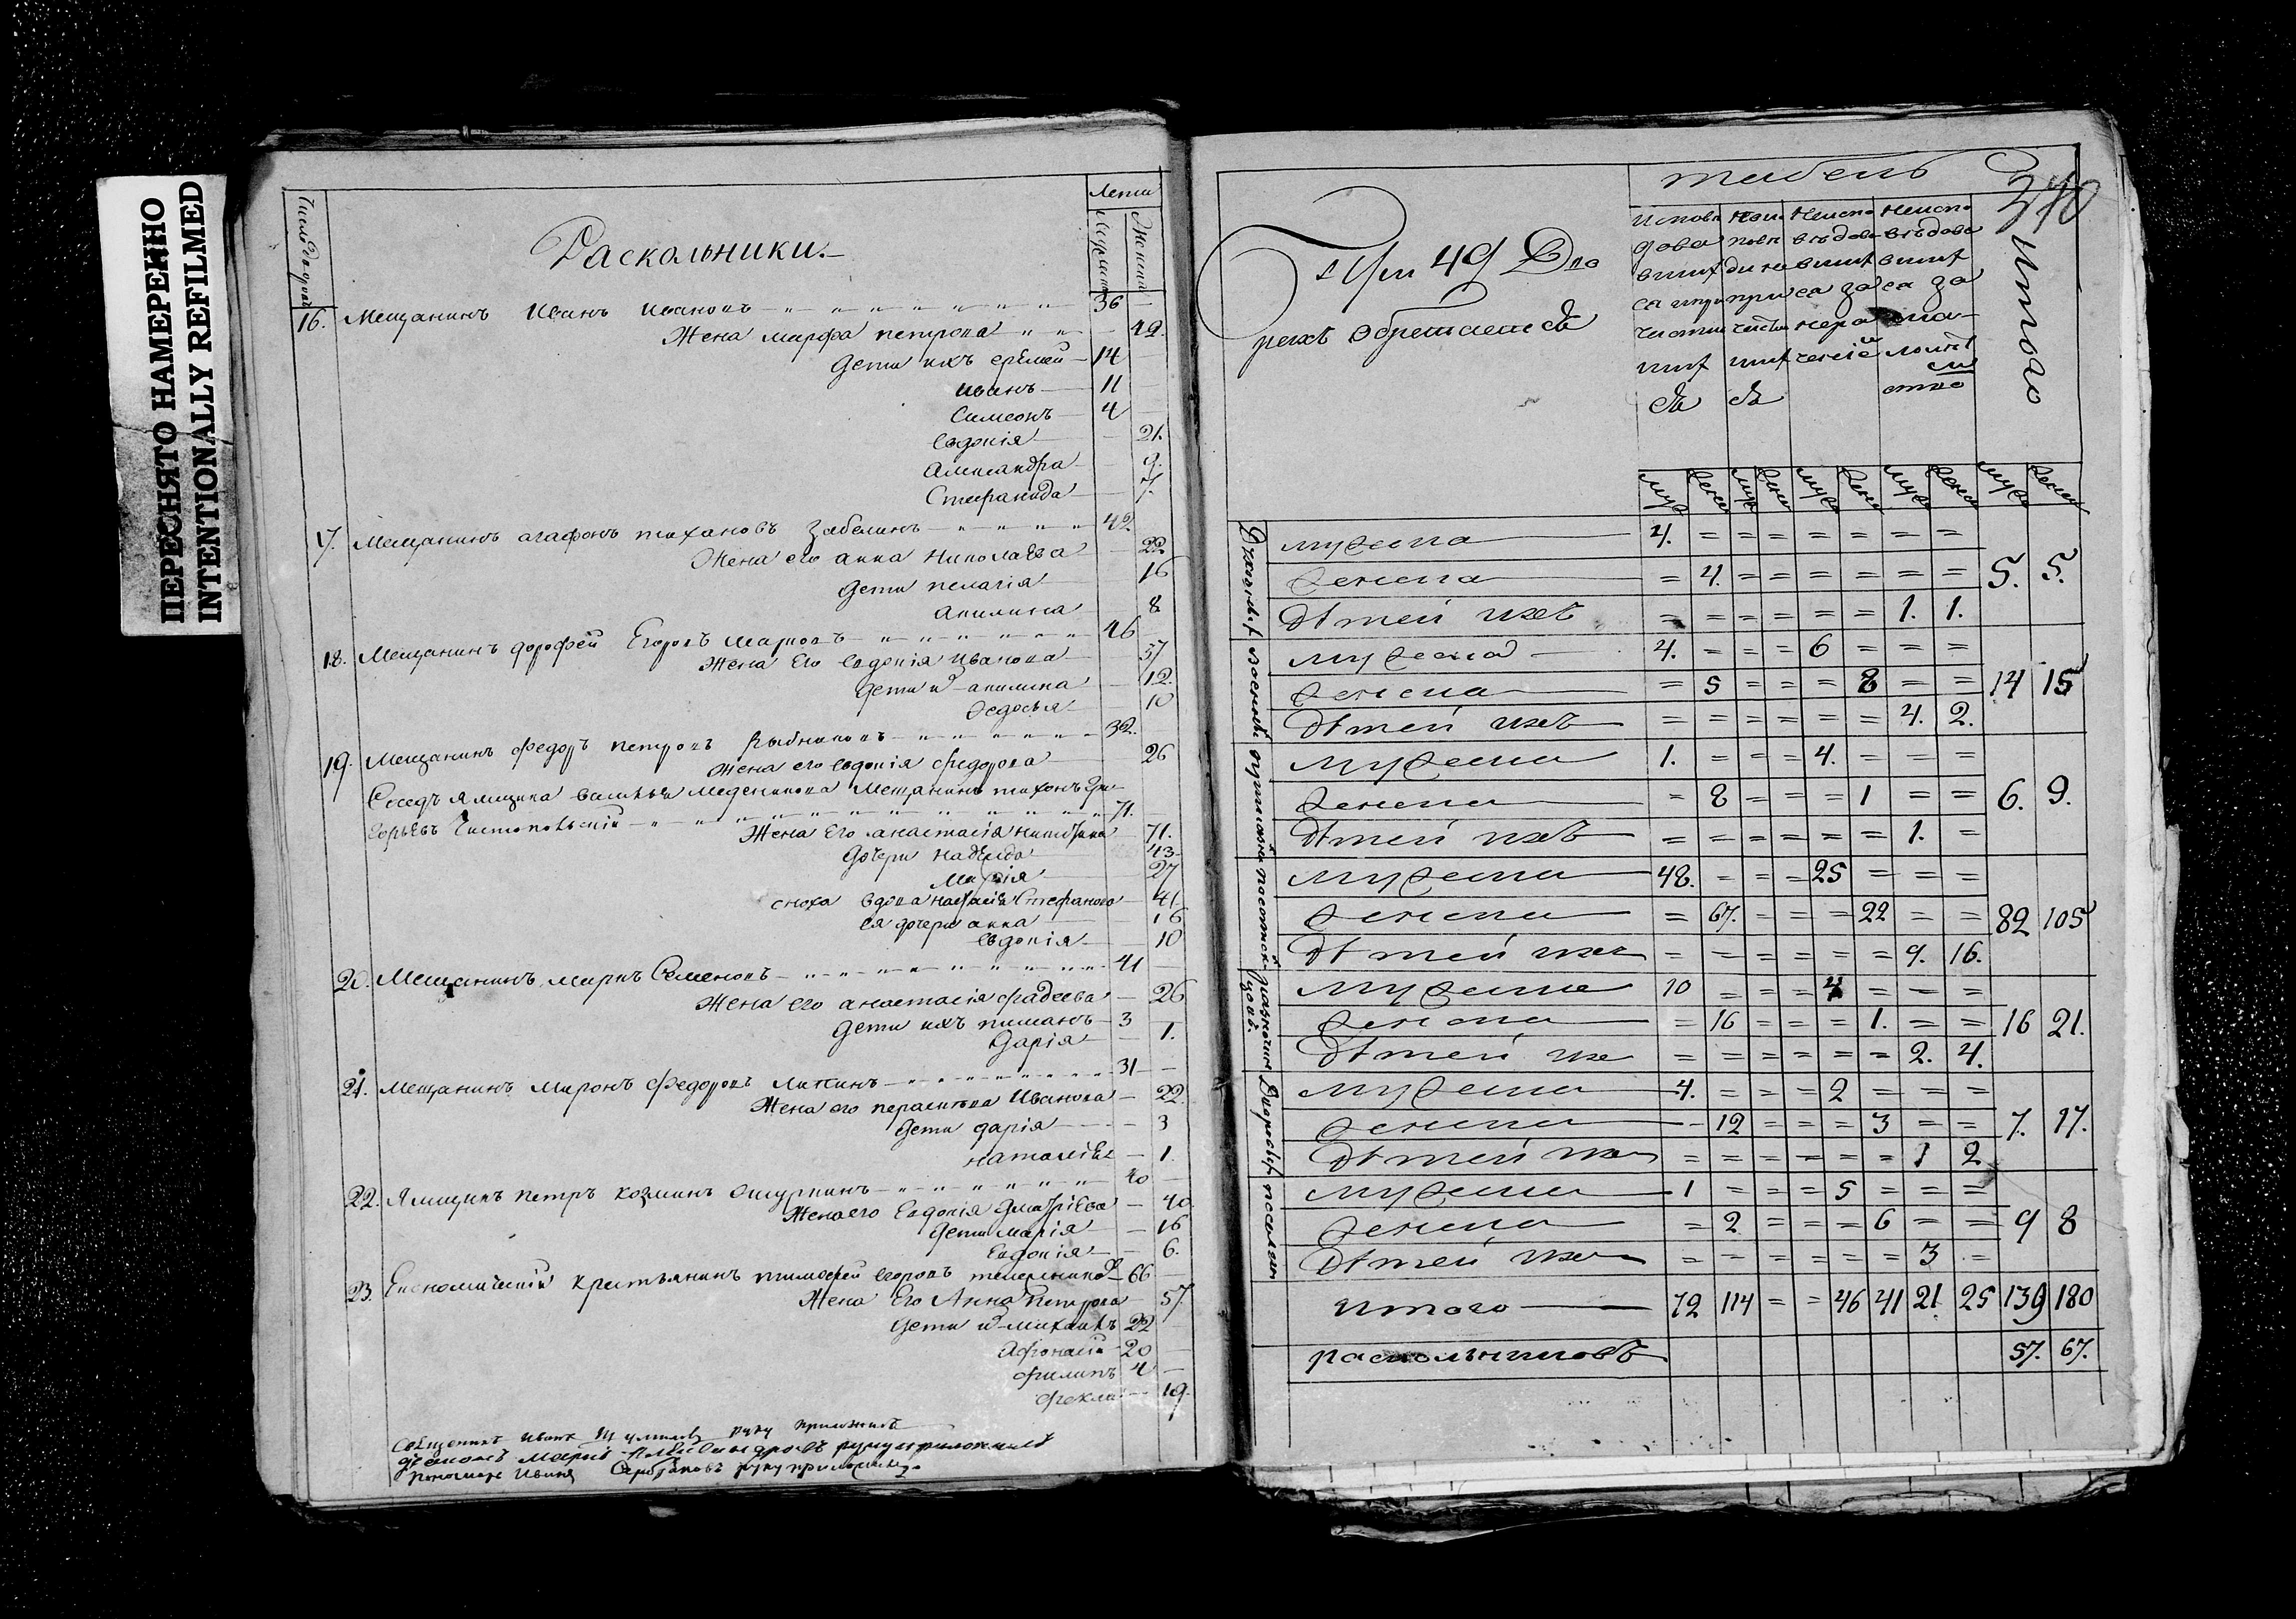 ПЕРЕСНЯТО НАМЕРЕННО
INTENTIONALLY REFILMED
Число дворовъ
Лета
Мужеска
Женска
Раскольники.
16. Мещанинъ Иванъ Ивановъ 36
Жена марфа петрова 49.
Дети ихъ еремей 14
иванъ 11
Симеонъ 4
Евдокія 21.
Александра 9.
Стефанида 7.
17. Мещанинъ агафонъ тихановъ Забелинъ 42.
Жена его анна Николаева 22.
Дети пелагія 16
акилина 8
18. Мещанинъ дорофей Егоровъ марковъ 46
Жена Его евдокія иванова 57
Дети и акилина 12.
Ѳедосья 10
19. Мещанинъ федоръ петровъ рыбниковъ 32.
Жена его евдокія федорова 26
Соседъ ямщика василья меденикова Мещанинъ тихонъ Гри-
горьевъ Чистопольскій 71.
Жена Его анастасія никитина 71.
Дочери надежда 43.
Марія 27
сноха вдова настасія Стефанова 41.
ея дочери анна 16
Евдокія 10
20. Мещанинъ марк Семеновъ 41
Жена его анастасія фадеева 26
Дети ихъ пиманъ 3
Дарія 1.
21. Мещанинъ миронъ федоровъ Липинъ 31
Жена его перасковья Иванова 22.
Дети дарія 3
наталія 1.
22. Ямщикъ петръ козминъ ошуркинъ 40
Жена его Евдокія Дмитріева 40.
Дети марія 16
Евдокія 6.
23. Економическій крестьянинъ тимофей егоровъ 66
Жена Его Анна Петрова 57.
Дети и Михаилъ 22
Афонасій 20
филипъ 4
фекла 19.
Священникъ иванъ руку приложилъ
діаконъ Марко Александровъ руку приложилъ
пономарь Иванъ Серебряковъ руку приложилъ.
табель
340
При 49 Дво
рехъ обретаетса
испове
дова
вшихся
причасти
вшихся
неиспове
довавшихся
за нера
ченіемъ
неиспо
ведова
вшихся за
мало
летст
вом
Итого
муж женс муж женс муж женс муж женс муж женс
Духовных
мужеска 4. = = = = = = =
женска = 4. = = = = = = 5. 5.
детей ихъ = = = = = = 1. 1.
военныхъ
мужеска 4. = = = 6 = = =
женска = 5 = = = 8 = = 14 15
детей ихъ = = = = = = 4. 2.
мужеска 1. = = = 4. = = =
женска = 8 = = = 1 = = 6. 9.
детей ихъ = = = = = = 1. =
посацкихъ
мужеска 48. = = = 25 = = =
женска = 67. = = = 22 = = 82 105
детей ихъ = = = = = = 9. 16.
мужеска 10 = = = 4 = = =
женска = 16 = = = 1. = = 16 21.
детей их = = = = = = 2. 4.
Дворовых
мужеска 4. = = = 2 = = =
женска = 12 = = = 3 = = 7. 17.
детей их = = = = = = 1 2
поселян
мужеска 1 = = = 5 = = =
женска = 2 = = = 6 = = 9 8
детей их = = = = = = 3 =
итого 72 114 = = 46 41 21. 25 139 180
раскольниковъ 57. 67.